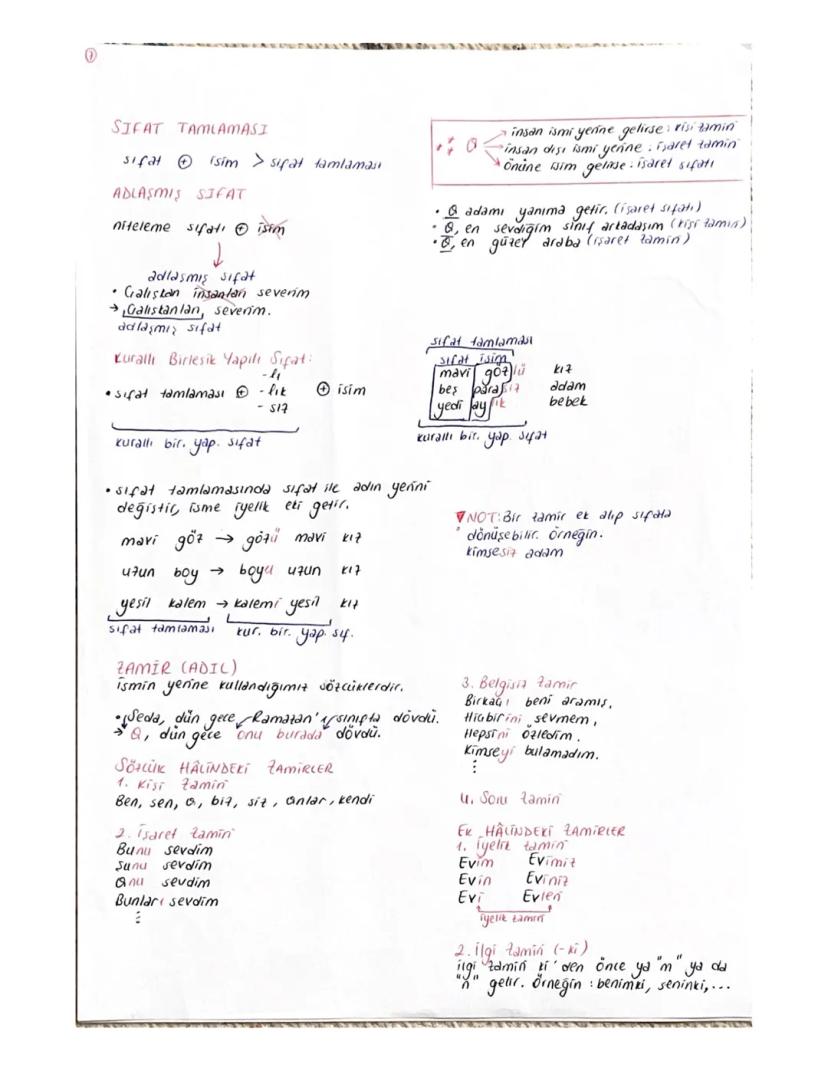 1
SIFAT TAMLAMASI
sıfat + isim > sıfat tamlaması
ADLAŞMIŞ SIFAT
niteleme sıfatı + isim
adlaşmış sıfat
• Çalışkan insanları severim
→ Çalışkanları, severim.
adlaşmış sıfat
Kurallı Birleşik Yapılı Sıfat:
-lı
• sıfat tamlaması + -lık + isim
- sız
kurallı bir. yap. sıfat
• sıfat tamlamasında sıfat ile adın yerini
değiştir, isme iyelik eki getir.
mavi göz → gözü mavi kız
uzun boy → boyu uzun kız
yeşil kalem → kalemi yeşil kız
sıfat tamlaması kur. bir. yap. sıf.
ZAMİR (ADIL)
ismin yerine kullandığımız sözcüklerdir.
• Seda, dün gece Ramazan'ı sınıfta dövdü.
→ O, dün gece onu burada dövdü.
SÖZCÜK HÂLİNDEKİ ZAMİRLER
1. Kişi Zamiri
Ben, sen, o, biz, siz, onlar, kendi
2. İşaret Zamiri
Bunu sevdim
Şunu sevdim
Onu sevdim
Bunları sevdim
⋮
O
insan ismi yerine gelirse: kişi zamiri
insan dışı ismi yerine: işaret zamiri
önüne isim gelirse: işaret sıfatı
• O adamı yanıma getir. (işaret sıfatı)
• O, en sevdiğim sınıf arkadaşım (kişi zamiri)
• O, en güzel araba (işaret zamiri)
sıfat tamlaması
sıfat isim
mavi gözlü kız
beş parasız adam
yedi aylık bebek
kurallı bir. yap. sıfat
NOT: Bir zamir ek alıp sıfata
dönüşebilir. Örneğin.
kimsesiz adam
3. Belgisiz Zamir
Birkaçı beni aramış,
Hiçbirini sevmem,
Hepsini özledim.
Kimseyi bulamadım.
⋮
4. Soru Zamiri
EK HÂLİNDEKİ ZAMİRLER
1. İyelik zamiri
Evim Evimiz
Evin Eviniz
Evi Evleri
iyelik zamiri
2. İlgi Zamiri (-ki)
ilgi zamiri ki'den önce ya "m" ya da
"n" gelir. Örneğin: benimki, seninki,...